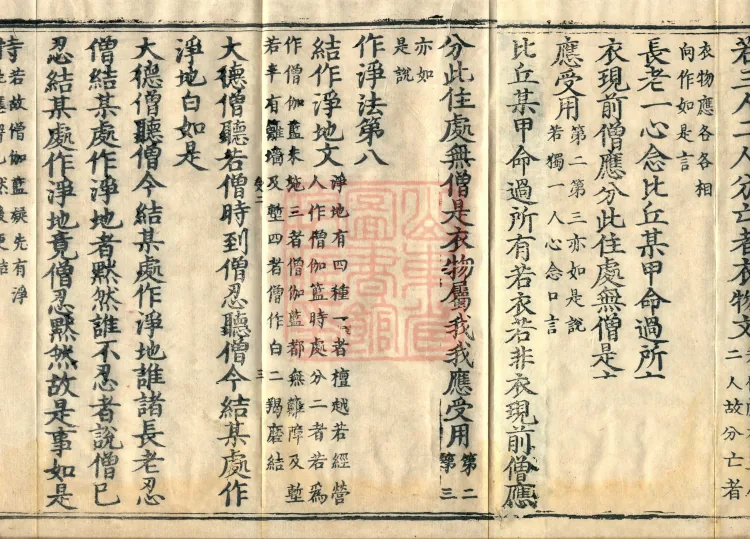 人分亡者衣物文
二人故分亡者
衣物應各各相
向作如是言
長老一心念比丘某甲命過所
衣現前僧應分此住處無僧是
應受用
第二第三亦如是說
若獨一人心念口言
比丘某甲命過所有若衣若非衣現前僧應
分此住處無僧是衣物屬我我應受用
第二
第三
亦如
是說
作淨法第八
結作淨地文
淨地有四種一者檀越若經營
人作僧伽籃時處分二者若爲
作僧伽藍未施三者僧伽藍都無籬障及塹
若半有籬墻及塹四者僧作白二羯磨結
三
大德僧聽若僧時到僧忍聽僧今結某處作
淨地白如是
大德僧聽僧今結某處作淨地誰諸長老忍
僧結某處作淨地者默然誰不忍者說僧已
忍結某處作淨地竟僧忍默然故是事如是
持
若故僧伽藍疑先有淨